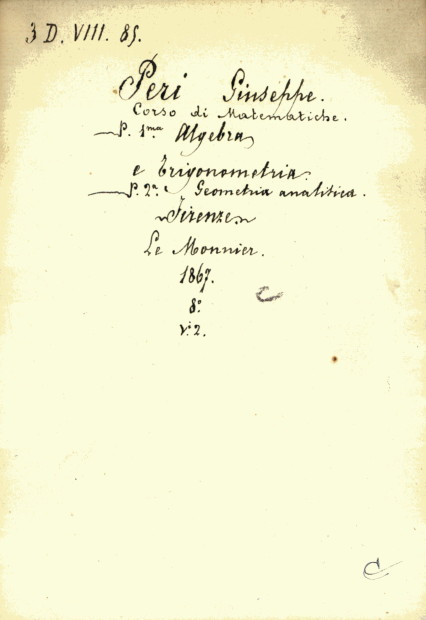 3 D. VIII. 85.
Peri Giuseppe.
Corso di Matematiche.
P. 1ma Algebra
e Trigonometria.
P. 2a Geometria analitica.
Firenze
Le Monnier.
1867.
8°
v. 2.
C